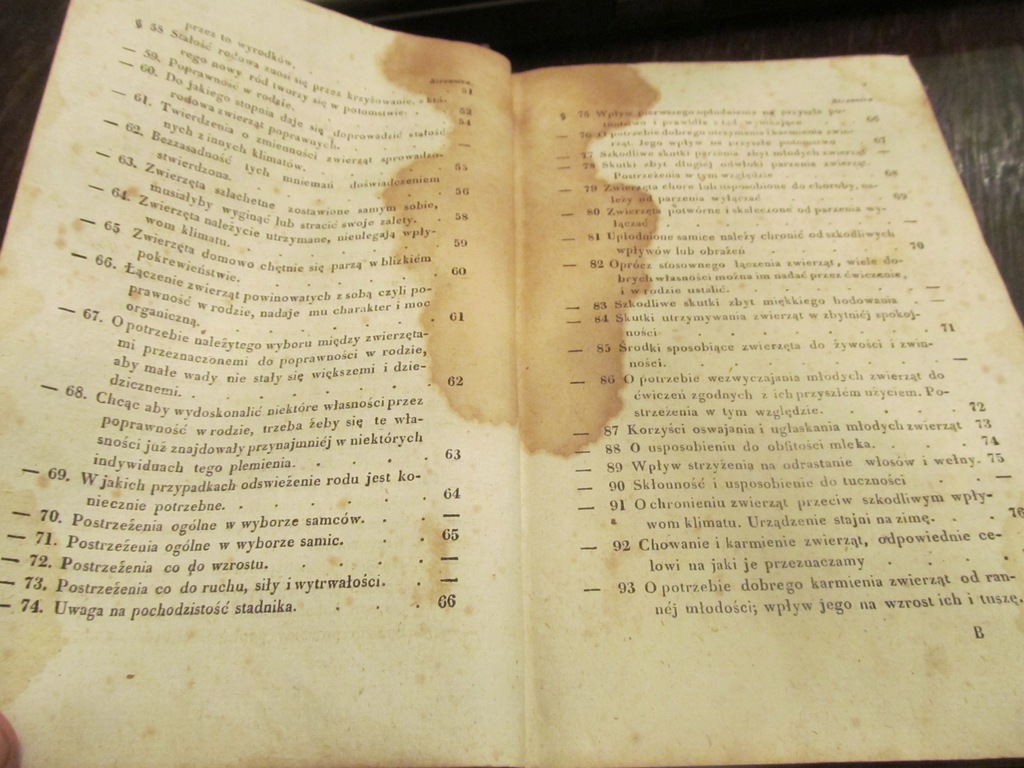 przez to wyrodków.
§ 58 Stałość rodowa znosi się przez krzyżowanie, z któ-
rego nowy ród tworzy się w potomstwie. . 51
— 59. Poprawność w rodzie. . 52
— 60. Do jakiego stopnia daje się doprowadzić stałość
rodowa zwierząt poprawnych. . 54
— 61. Twierdzenia o zmienności zwierząt sprowadzo-
nych z innych klimatów. . —
— 62. Bezzasadność tych mniemań doświadczeniem
stwierdzona. . 55
— 63. Zwierzęta szlachetne zostawione samym sobie,
musiałyby wyginąć lub stracić swoje zalety. . 56
— 64. Zwierzęta należycie utrzymane, nieulegają wpły-
wom klimatu. . 58
— 65 Zwierzęta domowo chętnie się parzą w blizkiém
pokrewieństwie. . 59
— 66. Łączenie zwierząt powinowatych z sobą czyli po-
prawność w rodzie, nadaje mu charakter i moc
organiczną. . 60
— 67. O potrzebie należytego wyboru między zwierzęta-
mi przeznaczonemi do poprawności w rodzie,
aby małe wady nie stały się większemi i dzie-
dzicznemi. . 61
— 68. Chcąc aby wydoskonalić niektóre własności przez
poprawność w rodzie, trzeba żeby się te wła-
sności już znajdowały przynajmniéj w niektórych
indywiduach tego plemienia. . 62
— 69. W jakich przypadkach odswieżenie rodu jest ko-
niecznie potrzebne. . 63
— 70. Postrzeżenia ogólne w wyborze samców. . 64
— 71. Postrzeżenia ogólne w wyborze samic. —
— 72. Postrzeżenia co do wzrostu. . 65
— 73. Postrzeżenia co do ruchu, siły i wytrwałości. . —
— 74. Uwaga na pochodzistość stadnika. . 66
§ 75 Wpływ pierwszego upłodnienia na przyszłe po-
tomstwo i prawidła z tąd wynikające 66
— 76 O potrzebie dobrego utrzymania i karmienia zwie-
rząt. Jego wpływ na przyszłe potomstwo. 67
— 77 Szkodliwe skutki parzenia zbyt młodych zwierząt —
— 78 Skutki zbyt długiéj odwłoki parzenia zwierząt.
Postrzeżenia w tym względzie 68
— 79 Zwierzęta chore lub usposobione do choroby, na-
leży od parzenia wyłączać 69
— 80 Zwierzęta potwórne i skaleczone od parzenia wy-
łączać —
— 81 Upłodnione samice należy chronić od szkodliwych
wpływów lub obrażeń 70
— 82 Oprócz stosownego łączenia zwierząt, wiele do-
brych własności można im nadać przez ćwiczenie,
i w rodzie ustalić. . —
— 83 Szkodliwe skutki zbyt miękkiego hodowania . —
— 84 Skutki utrzymywania zwierząt w zbytniéj spokoj-
ności . 71
— 85 Środki sposobiące zwierzęta do żywości i zwin-
ności. . —
— 86 O potrzebie wezwyczajania młodych zwierząt do
ćwiczeń zgodnych z ich przyszłém użyciem. Po-
strzeżenia w tym względzie. . 72
— 87 Korzyści oswajania i ugłaskania młodych zwierząt 73
— 88 O usposobieniu do obfitości mleka. . 74
— 89 Wpływ strzyżenia na odrastanie włosów i wełny. 75
— 90 Skłonność i usposobienie do tuczności . —
— 91 O chronieniu zwierząt przeciw szkodliwym wpły-
wom klimatu. Urządzenie stajni na zimę. . 76
— 92 Chowanie i karmienie zwierząt, odpowiednie ce-
lowi na jaki je przeznaczamy . . —
— 93 O potrzebie dobrego karmienia zwierząt od ran-
néj młodości; wpływ jego na wzrost ich i tuszę.
B